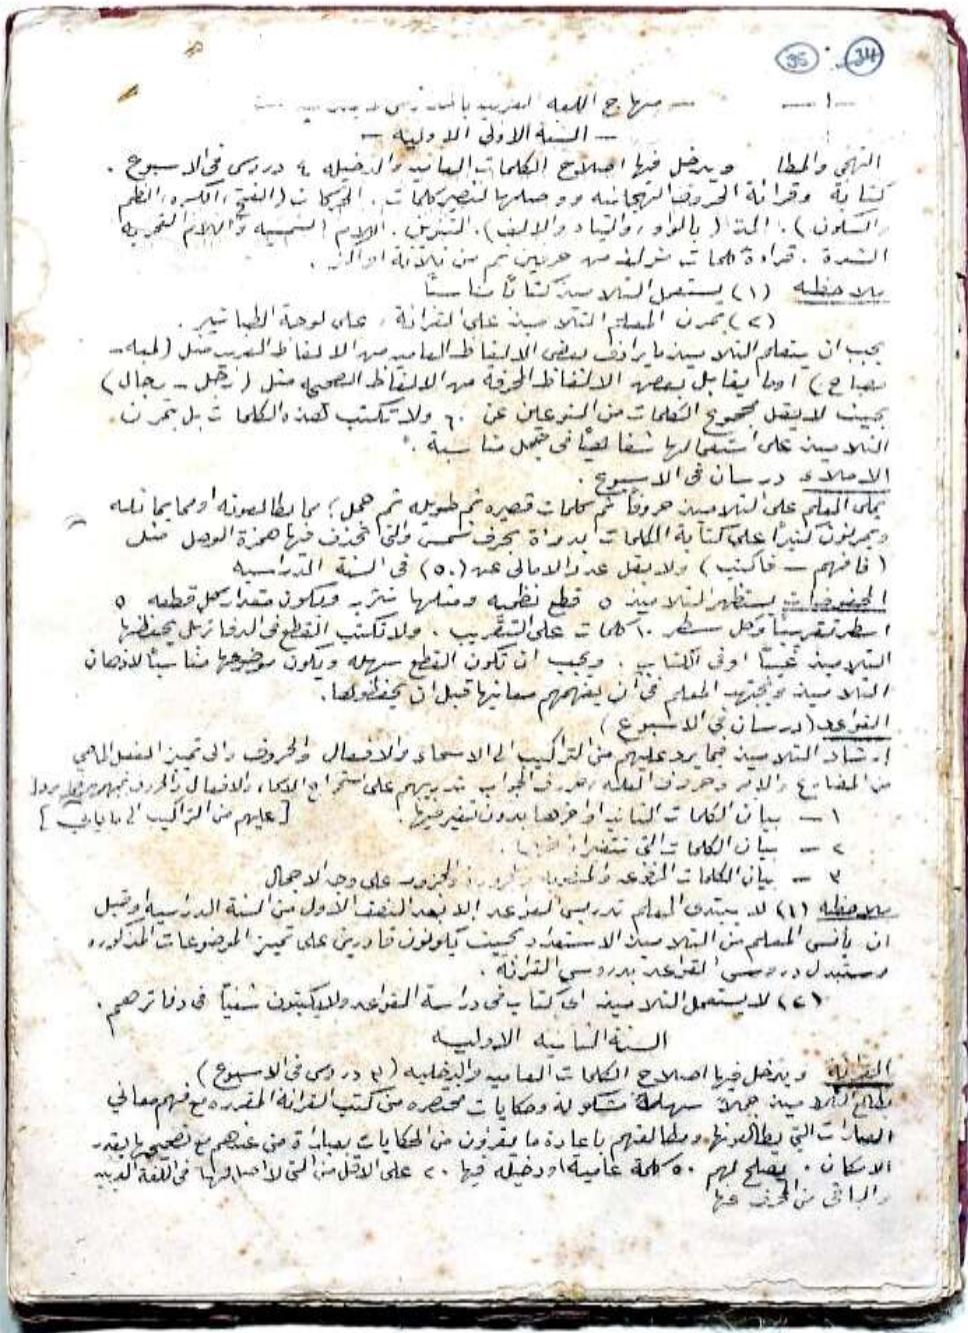 35 34
— ١ — — منهاج اللغة العربية
— السنة الاولى الاولية —
التهجي والمطا ويدخل فيها اصلاح الكلمات العامية والدخيلة ٤ دروس في الاسبوع .
كتابة وقرائة الحروف الهجائية ووصلها لتصير كلمات . الحركات (الفتح ، الكسر ، الضم
والسكون ) . المد ( بالواو ، والياء والالف ) . التنوين . اللام الشمسية واللام القمرية
الشدة . قراءة كلمات تتألف من حرفين ثم من ثلاثة او اكثر .
ملاحظة (١) يستعمل التلاميذ كتابًا مناسبًا
(٢) يمرن المعلم التلاميذ على القرائة ، على لوحة الطباشير .
يجب ان يتعلم التلاميذ ما يرادف بعض الالفاظ العامية من الالفاظ العربية مثل (لمبة —
مصباح) او ما يقابل بعض الالفاظ المحرفة من الالفاظ الصحيحة مثل (رجل — رجال)
بحيث لا يقل مجموع الكلمات من النوعين عن ٦٠ ولا تكتب هذه الكلمات بل يتمرن
التلاميذ على استعمالها شفاهيًا في جمل مناسبة .
الاملاء درسان في الاسبوع .
يملي المعلم على التلاميذ حروفًا ثم كلمات قصيرة ثم طويلة ثم جمل ؛ مما يطالعونه او مما يماثله
ويمرنون كثيرًا على كتابة الكلمات المبدوأة بحرف شمسي والتي تحذف فيها همزة الوصل مثل
(فافهم — فاكتب) ولا يقل عدد الامالي عن (٥٠) في السنة الدراسية
المحفوظات يستظهر التلاميذ ٥ قطع نظمية ومثلها نثرية ويكون مقدار كل قطعة ٥
اسطر تقريبًا وكل سطر ١٠ كلمات على التقريب . ولا تكتب القطع في الدفاتر بل يحفظها
التلاميذ غيبًا او في الكتاب . ويجب ان تكون القطع سهلة ويكون موضوعها مناسبًا لاذهان
التلاميذ ويجتهد المعلم في أن يفهمهم معانيها قبل ان يحفظوها .
القواعد (درسان في الاسبوع)
ارشاد التلاميذ فيما يرد عليهم من التراكيب الى الاسماء والافعال والحروف والى تمييز الفعل الماضي
من المضارع والامر وحروف العلة وحروف الجواب تدريبهم على استخراج الاسماء والافعال والحروف مما يرد
[عليهم من التراكيب الى ما يأتي]
١ — بيان الكلمات الثابتة اواخرها بدون تغيير فيها .
٢ — بيان الكلمات التي تتغير اواخرها .
٣ — بيان الكلمات المرفوعة والمنصوبة والمجرورة والمجزومة على وجه الاجمال
ملاحظة (١) لا يبتدئ المعلم تدريس القواعد الا بعد النصف الاول من السنة الدراسية او قبل
ان يأنس المعلم من التلاميذ الاستعداد بحيث يكونون قادرين على تمييز الموضوعات المذكورة
وتستبدل دروس القواعد بدروس القرائة .
(٢) لا يستعمل التلاميذ اي كتاب في دراسة القواعد ولا يكتبون شيئًا في دفاترهم .
السنة الثانية الاولية
القرائة ويدخل فيها اصلاح الكلمات العامية والدخيلة (٣ دروس في الاسبوع)
يطالع التلاميذ جملًا سهلة مشكولة وحكايات مختصرة من كتب القرائة المقررة مع فهم معاني
العبارات التي يطالعونها ومطالبتهم باعادة ما يقرؤن من الحكايات بعبارة من عندهم مع تصحيحها بقدر
الامكان . يصلح لهم ٥٠ كلمة عامية او دخيلة فيها ٢٠ على الاقل من التي لا اصل لها في اللغة العربية
والباقي من المحرف عنها